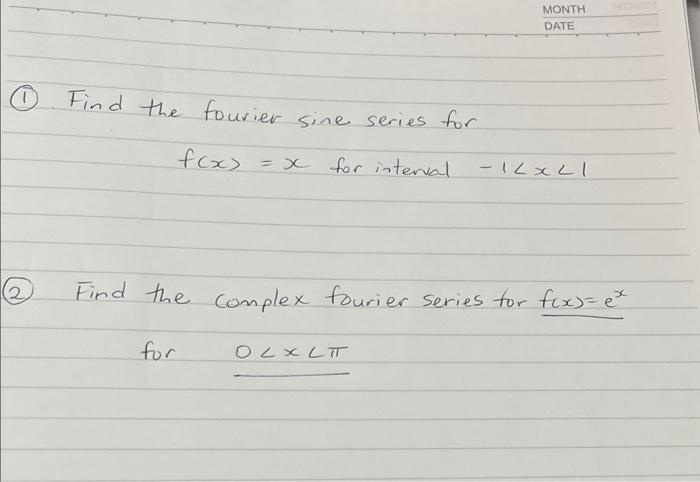 MONTH
DATE
① Find the fourier sine series for
f(x) = x for interval -1<x<1
② Find the complex fourier series for f(x)=eˣ
for 0<x<π